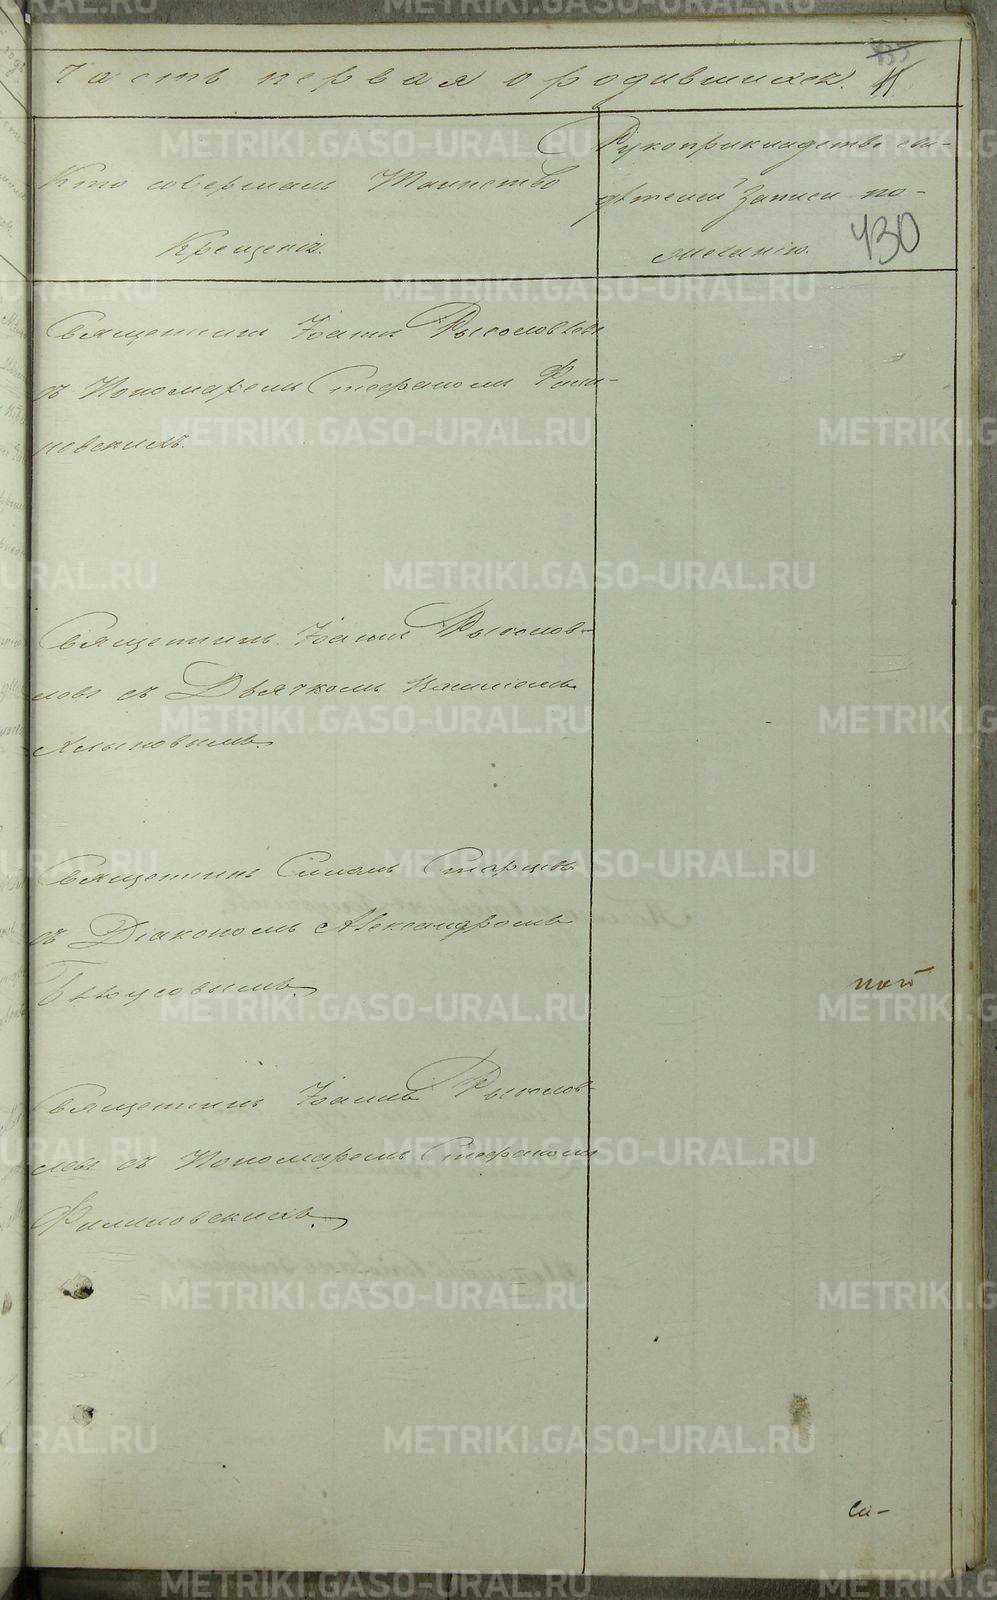 Часть первая о родившихся.
11
430
Кто совершалъ Таинство
Крещенія.
Рукоприкладство сви-
дѣтелей записи по
желанію.
Священникъ Іоаннъ Рыболовлевъ
съ Пономаремъ Стефаномъ Фили-
повскимъ.
Священникъ Іоаннъ Рыболов-
левъ съ Дьячкомъ
Священникъ Симеонъ Старцевъ
съ Діакономъ Александромъ
Бѣлоусовымъ.
ной
Священникъ Іоаннъ Рыболов-
левъ съ Пономаремъ Стефаномъ
Филиповскимъ.
Си-
METRIKI.GASO-URAL.RU